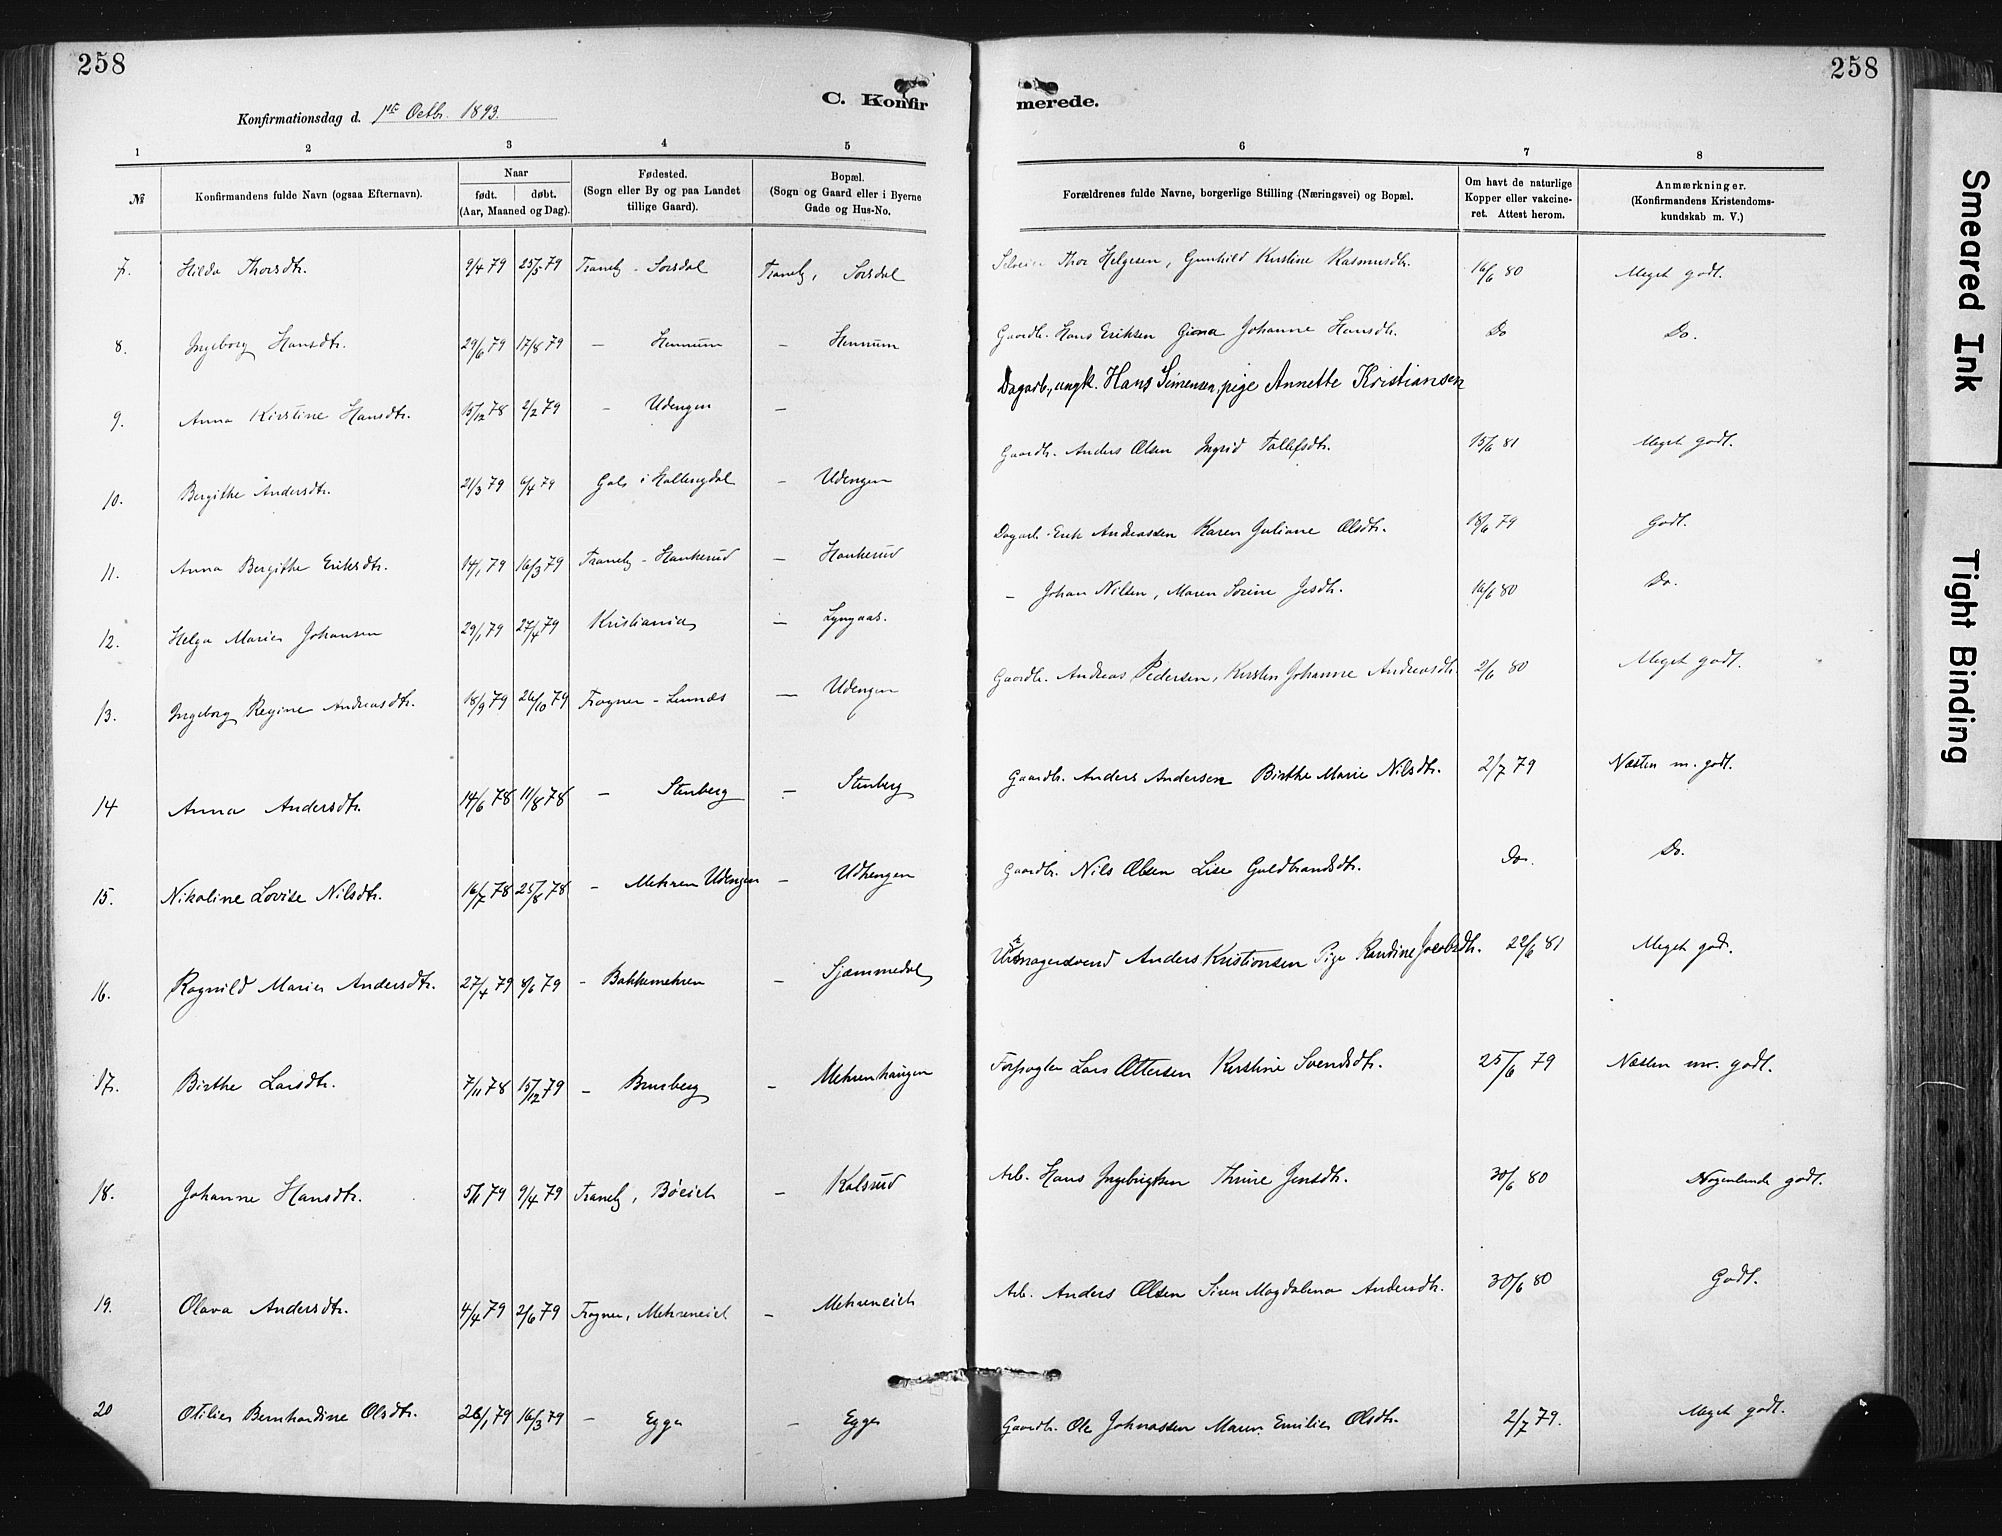 258
258
C. Konfirmerede.
Konfirmationsdag d. 1ste Octbr. 1893.
1 2 3 4 5 6 7 8
№
Konfirmandens fulde Navn (ogsaa Efternavn).
Naar
født. døbt.
(Aar, Maaned og Dag).
Fødested.
(Sogn eller By og paa Landet
tillige Gaard).
Bopæl.
(Sogn og Gaard eller i Byerne
Gade og Hus-No.
Forældrenes fulde Navne, borgerlige Stilling (Næringsvei) og Bopæl.
Om havt de naturlige
Kopper eller vakcine-
ret. Attest herom.
Anmærkninger.
(Konfirmandens Kristendoms-
kundskab m. V.)
7. Hilda Thorsdtr. 9/4 79 25/5 79 Tranby - Sørsdal Tranby, Sørsdal Thor Helgesen, Gunhild Kirstine Rasmusdtr. 16/6 80 Meget godt.
8. Ingeborg Hansdtr. 29/6 79 17/8 79 — Hennum — Hennum Gaardbr. Hans Eriksen Johanne Hansdtr. Do Do.
9. Anna Kirstine Hansdtr. 15/12 78 2/2 79 — Udengen — Dagarb., ungk. Hans Simensen, pige Annette Kristiansen
10. Bergithe Andersdtr. 21/3 79 6/4 79 Gols i Hallingdal — Udengen Gaardbr. Anders Olsen Ingrid Tollefsdtr. 15/6 81 Meget godt.
11. Anna Bergithe Eriksdtr. 14/1 79 16/3 79 Tranby - Haukerud — Haukerud Dagarb. Erik Andreassen Karen Juliane Olsdtr. 18/6 79 Godt.
12. Helga Marie Johansen 29/1 79 27/4 79 Kristiania — Lyngaas. — Johan Nilsen, Maren Sørine Jesdtr. 16/6 80 Do.
13. Ingeborg Regine Andreasdtr. 18/9 79 26/10 79 Frogner - Linnæs — Udengen Gaardbr. Andreas Pedersen, Kirsten Johanne Andreasdtr. 2/6 80 Meget godt.
14 Anna Andersdtr. 14/6 78 11/8 78 — Stenberg — Stenberg Gaardbr. Anders Andersen Birthe Marie Nilsdtr. 2/7 79 Næsten m. godt.
15. Nikoline Lovise Nilsdtr. 16/7 78 25/8 78 — Mehren Udengen — Udhengen Gaardbr. Nils Olsen Lise Guldbrandsdtr. Do. Do.
16. Ragnild Marie Andersdtr. 27/4 79 8/6 79 — Bakkemehren — Sjæmmedal Urmagersvend Anders Kristiansen Pige Randine Jacobsdtr. 22/6 81 Meget godt.
17. Birthe Larsdtr. 7/11 78 15/12 79 — Brusberg — Mehrenhaugen Forpagter Lars Ottersen Kirstine Svendsdtr. 25/6 79 Næsten m. godt.
18. Johanne Hansdtr. 5/1 79 9/4 79 Tranby, Bøeich — Kalsrud Arb. Hans Ingebrigtsen Thrine Jensdtr. 30/6 80 Nogenlunde godt.
19. Olava Andersdtr. 4/4 79 2/6 79 Frogner, Mehreneich — Mehreneich Arb. Anders Olsen Siren Magdalena Andersdtr. 30/6 80 Godt.
20 Otilie Bernhardine Olsdtr. 26/1 79 16/3 79 — Egge — Egge Gaardbr. Ole Johnassen Maren Emilie Olsdtr. 2/7 79. Meget godt.
Smeared Ink
Tight Binding